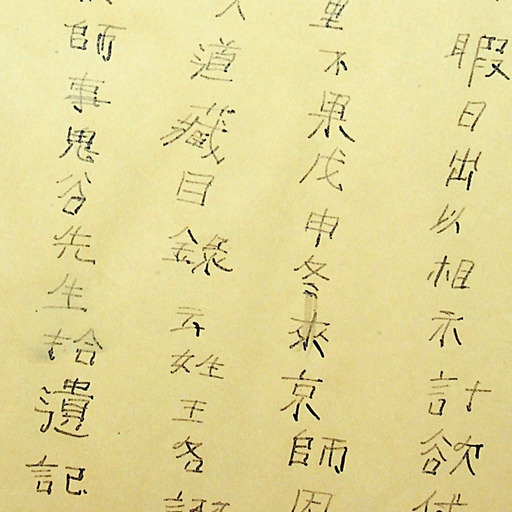 暇日出以相示計欲
里不果戊申冬來京師因
道藏目錄云姓王名詡
師事鬼谷先生拾遺記